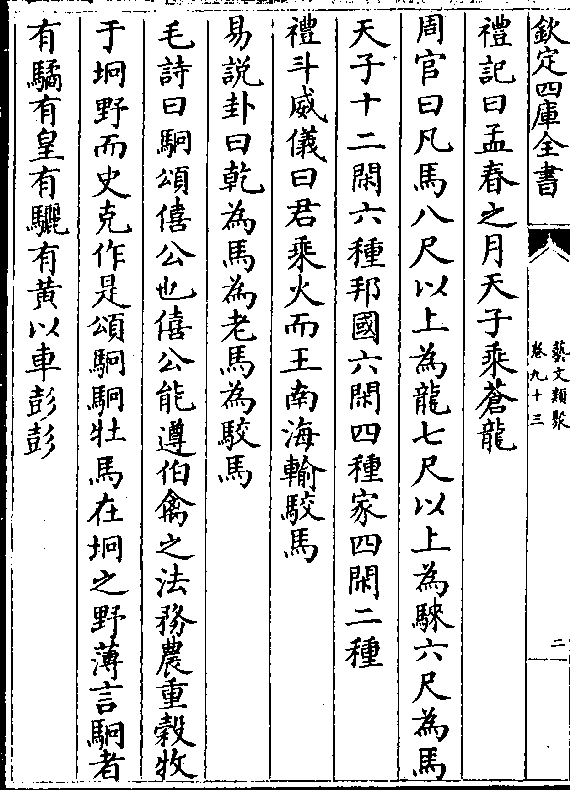 欽定四庫全書
藝文類聚
卷九十三
二
禮記曰孟春之月天子乘蒼龍
周官曰凡馬八尺以上為龍七尺以上為騋六尺為馬
天子十二閑六種邦國六閑四種家四閑二種
禮斗威儀曰君乘火而王南海輸駮馬
易說卦曰乾為馬為老馬為駮馬
毛詩曰駉頌僖公也僖公能遵伯禽之法務農重穀牧
于坰野而史克作是頌駉駉牡馬在坰之野薄言駉者
有驈有皇有驪有黃以車彭彭